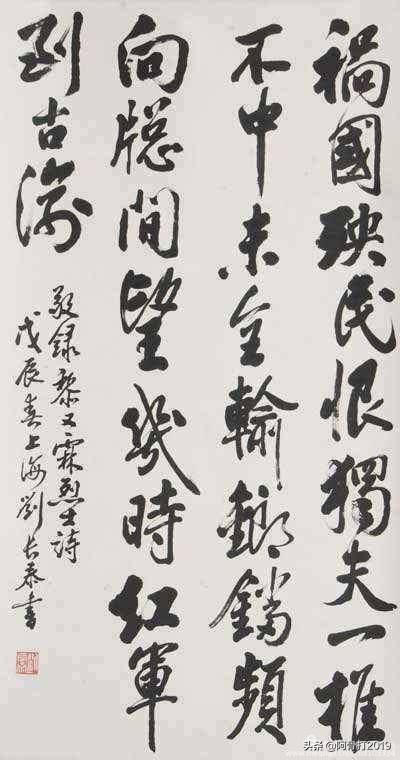 禍國殃民恨獨夫一椎
不中未全輸鋃鐺頻
向牕間望幾時紅軍
到古渝
敬録黎又霖烈士詩
戊辰春上海劉長泰書
头条 @阿骨打2019